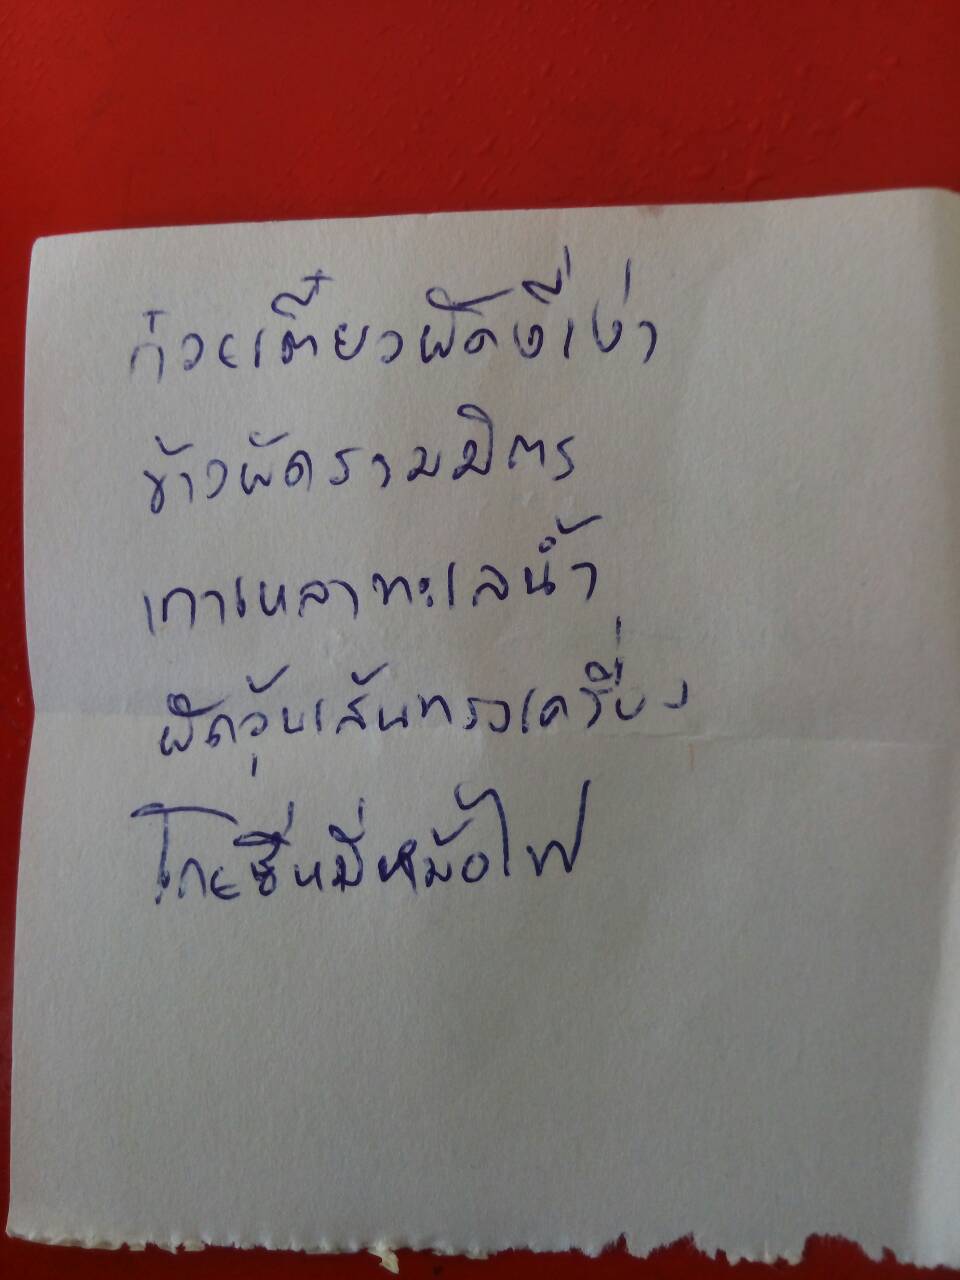 ก๋วยเตี๋ยวผัดขี้เมา
ข้าวผัดรวมมิตร
เกาเหลาทะเลน้ำ
ผัดวุ้นเส้นทรงเครื่อง
โกยซีหมี่หม้อไฟ